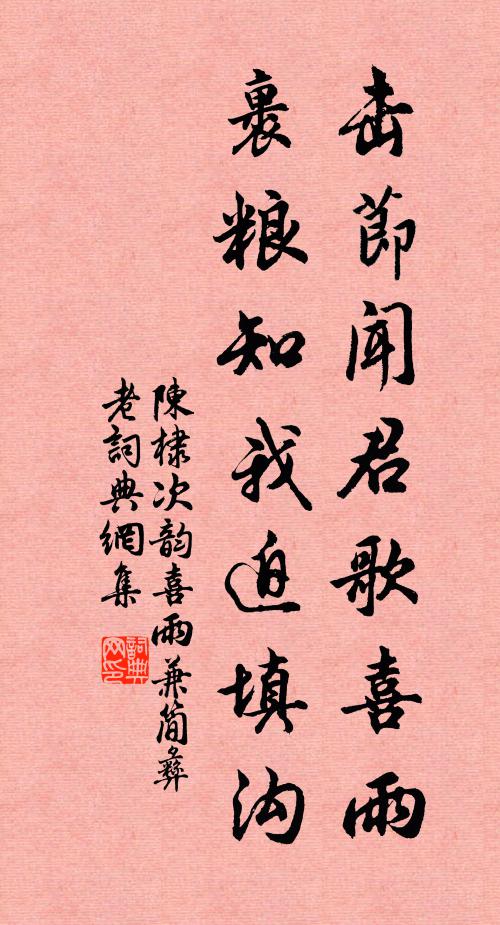 击節闻君歌喜雨
裹粮知我迫填沟
陳棣次韵喜雨兼简彝
老詞典網集
詞典
网印